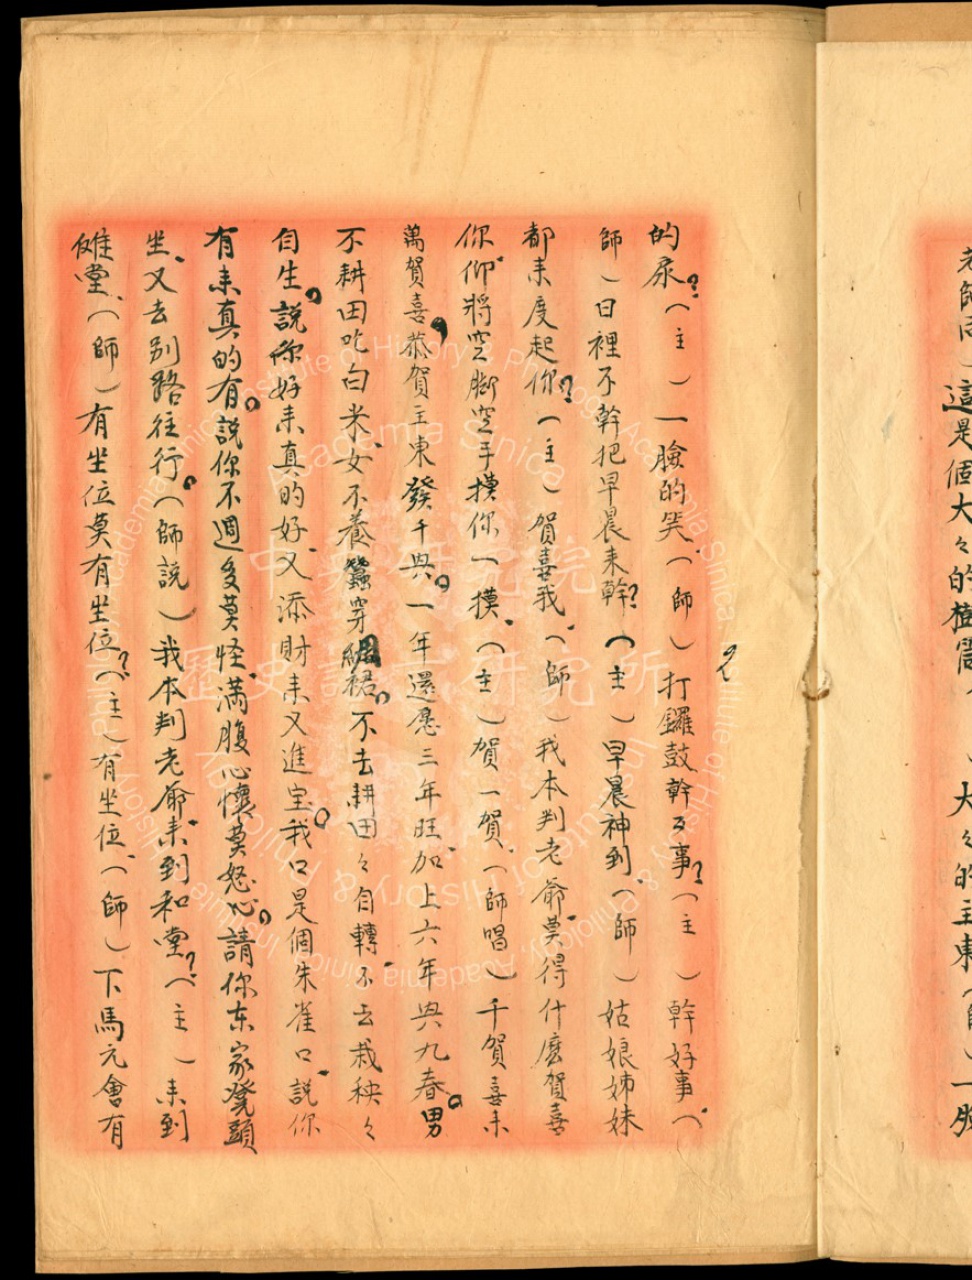 老師同）這是個大々的
大々的主東（師）一臉
的尿？（主）一臉的笑、（師）打鑼鼓幹乃事？（主）幹好事、（
師）日裡不幹把早晨来幹？（主）早晨神到、（師）姑娘姊妹
都来度起你？（主）賀喜我、（師）我本判老爺莫得什麽賀喜
你仰將空脚空手摸你一摸、（主）賀一賀、（師唱）千賀喜来
萬賀喜，恭賀主東發千興。一年還愿三年旺、加上六年興九春。男
不耕田吃白米、女不養蠶穿裙。不去耕田々自轉、不去栽秧々
自生。說你好来真的好、又添財来又進宝。我口是個朱雀口、說你
有来真的有。說你不週多莫怪、满腹心懷莫怒心。請你东家凳頭
坐、又去别路往行。（師說）我本判老爺来到和堂？（主）来到
傩堂、（師）有坐位莫有坐位？（主）有坐位、（師）下馬元會有
2
中央研究院
歷史語言研究所
Institute of History & Philology, Academia Sinica